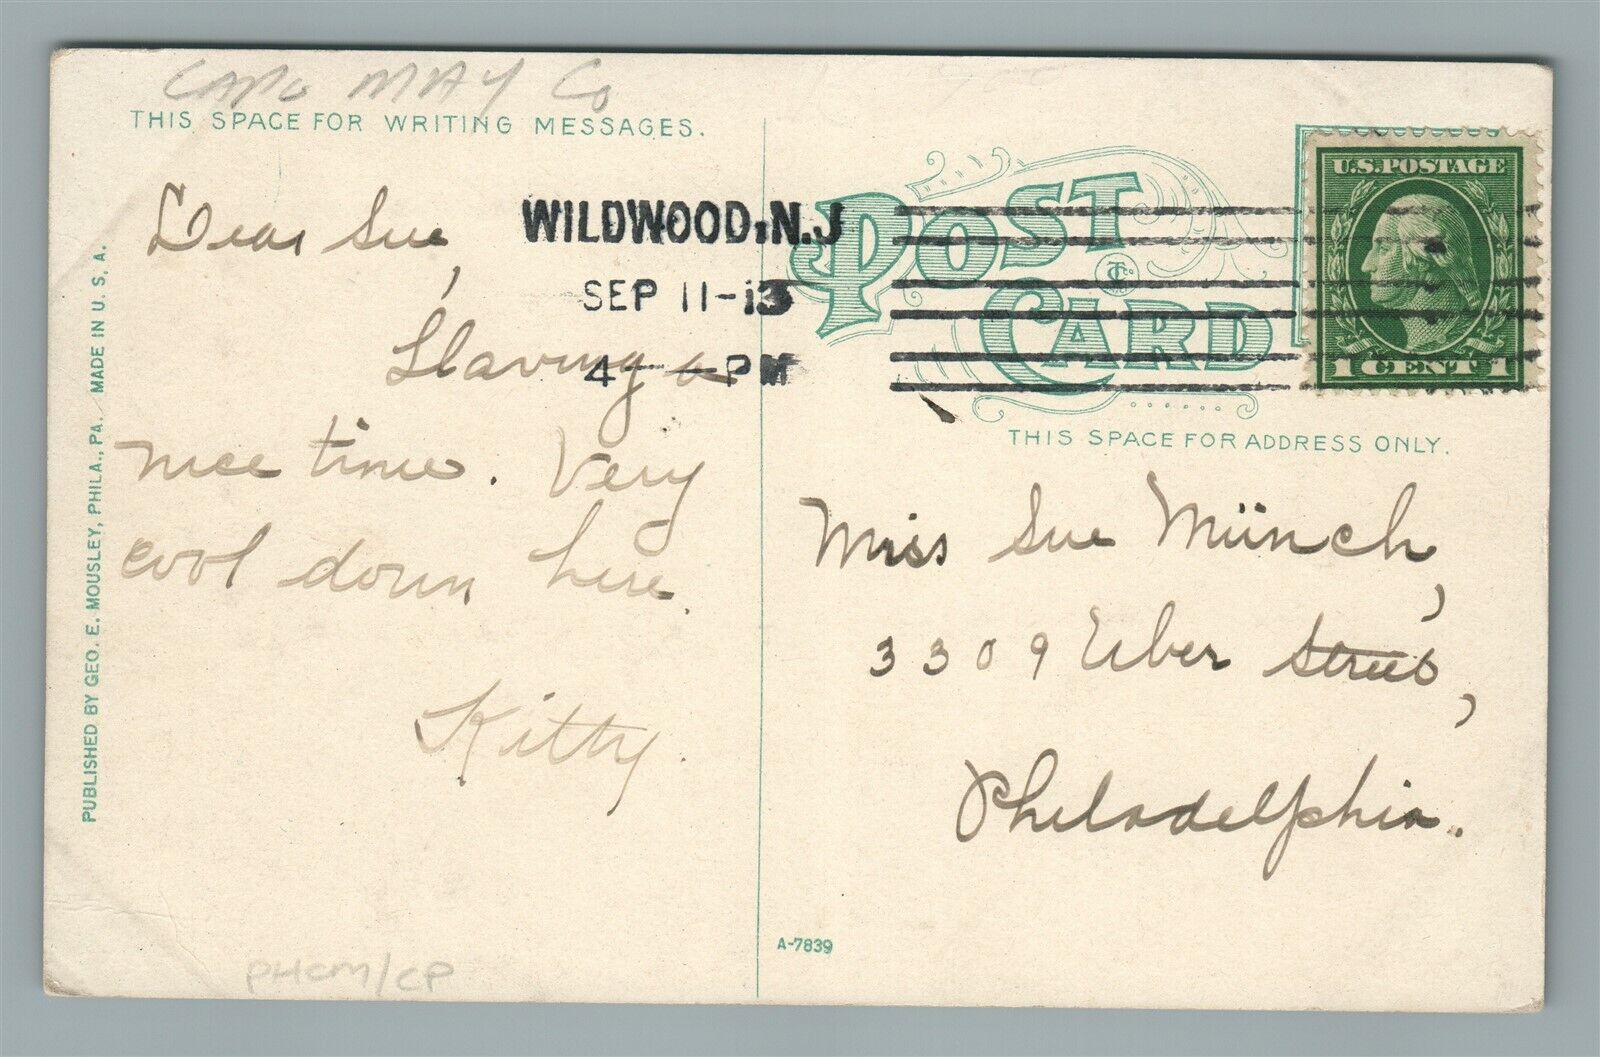 CAPe MAY Co
THIS SPACE FOR WRITING MESSAGES.
Dear Sue,
Having a
nice time. Very
cool down here.
Kitty.
WILDWOOD, N.J
SEP 11-13
4 - PM
POST
CARD
U.S. POSTAGE
1 CENT 1
THIS SPACE FOR ADDRESS ONLY.
Miss Sue Münch,
3309 Uber Street,
Philadelphia.
PUBLISHED BY GEO. E. MOUSLEY, PHILA., PA. MADE IN U. S. A.
A-7839
PHCM/CP